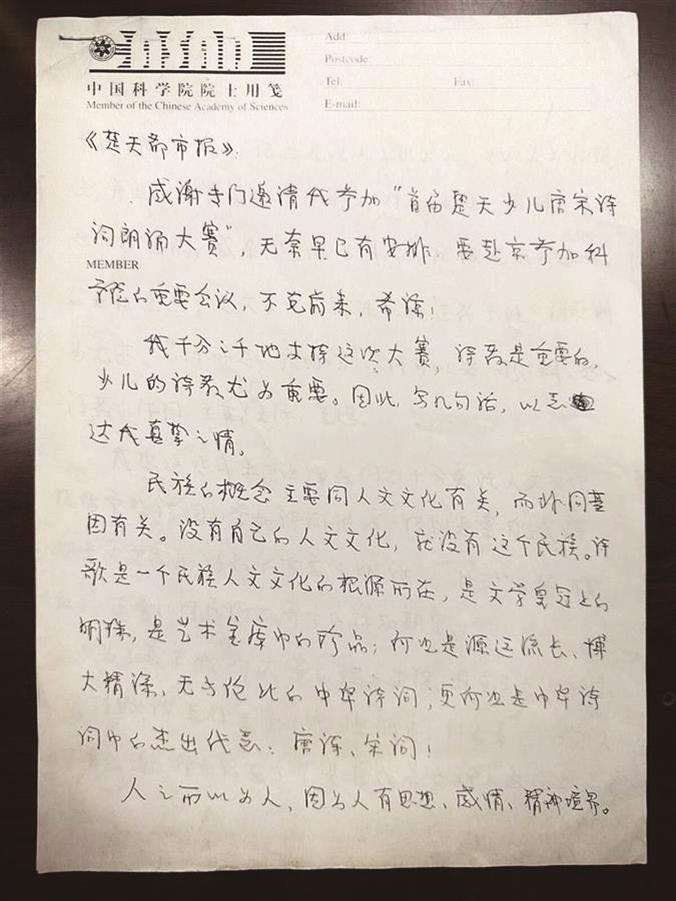 Add:
Postcode:
Tel: Fax:
E-mail:
中国科学院院士用笺
Member of the Chinese Academy of Sciences
《楚天都市报》:
感谢专门邀请我参加“首届楚天少儿唐宋诗
词朗诵大赛”，无奈早已有安排，要赴京参加科
MEMBER
学院的重要会议，不克前来，希谅！
我千分之千地支持这次大赛，诗教是重要的，
少儿的诗教尤为重要。因此，写几句话，以表
达我真挚之情。
民族的概念主要同人文文化有关，而非同基
因有关。没有自己的人文文化，就没有这个民族。诗
歌是一个民族人文文化的根源所在，是文学皇冠上的
明珠，是艺术宝库中的珍品；何也是源远流长、博
大精深、无与伦比的中华诗词；更何也是中华诗
词中的杰出代表：唐诗、宋词！
人之所以为人，因为人有思想、感情、精神境界。